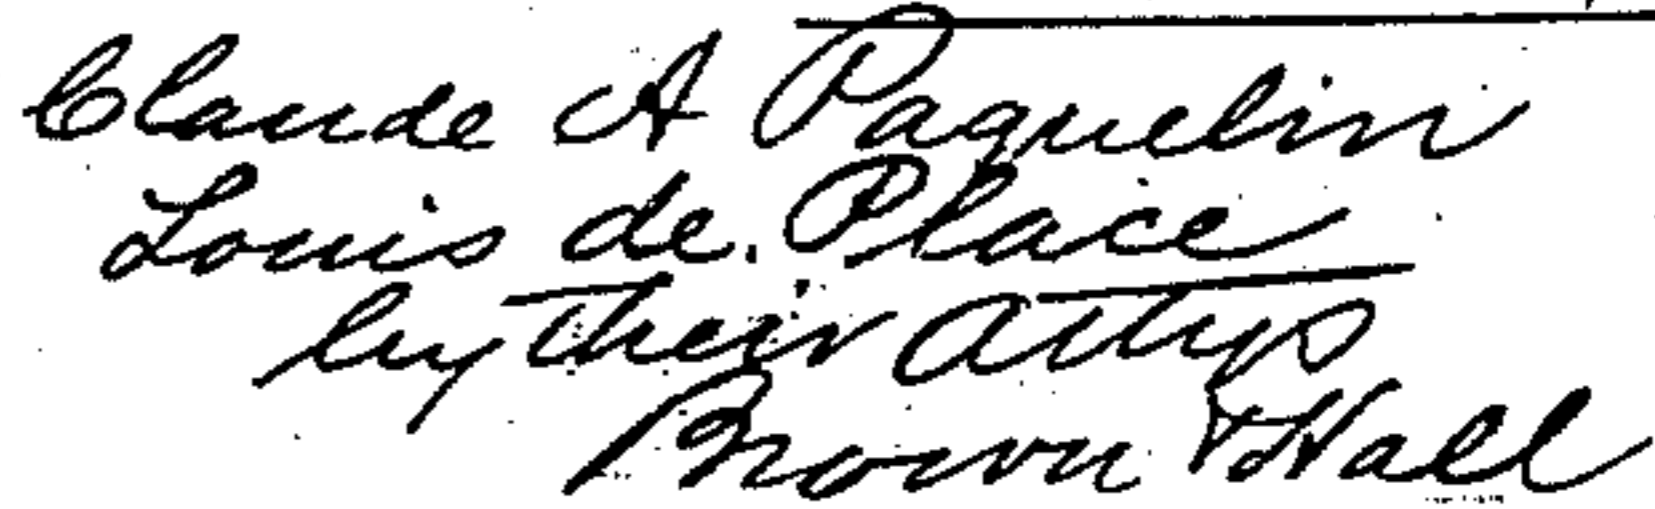 Claude A Paquelin
Louis de. Place
by their attys
Brown & Hall